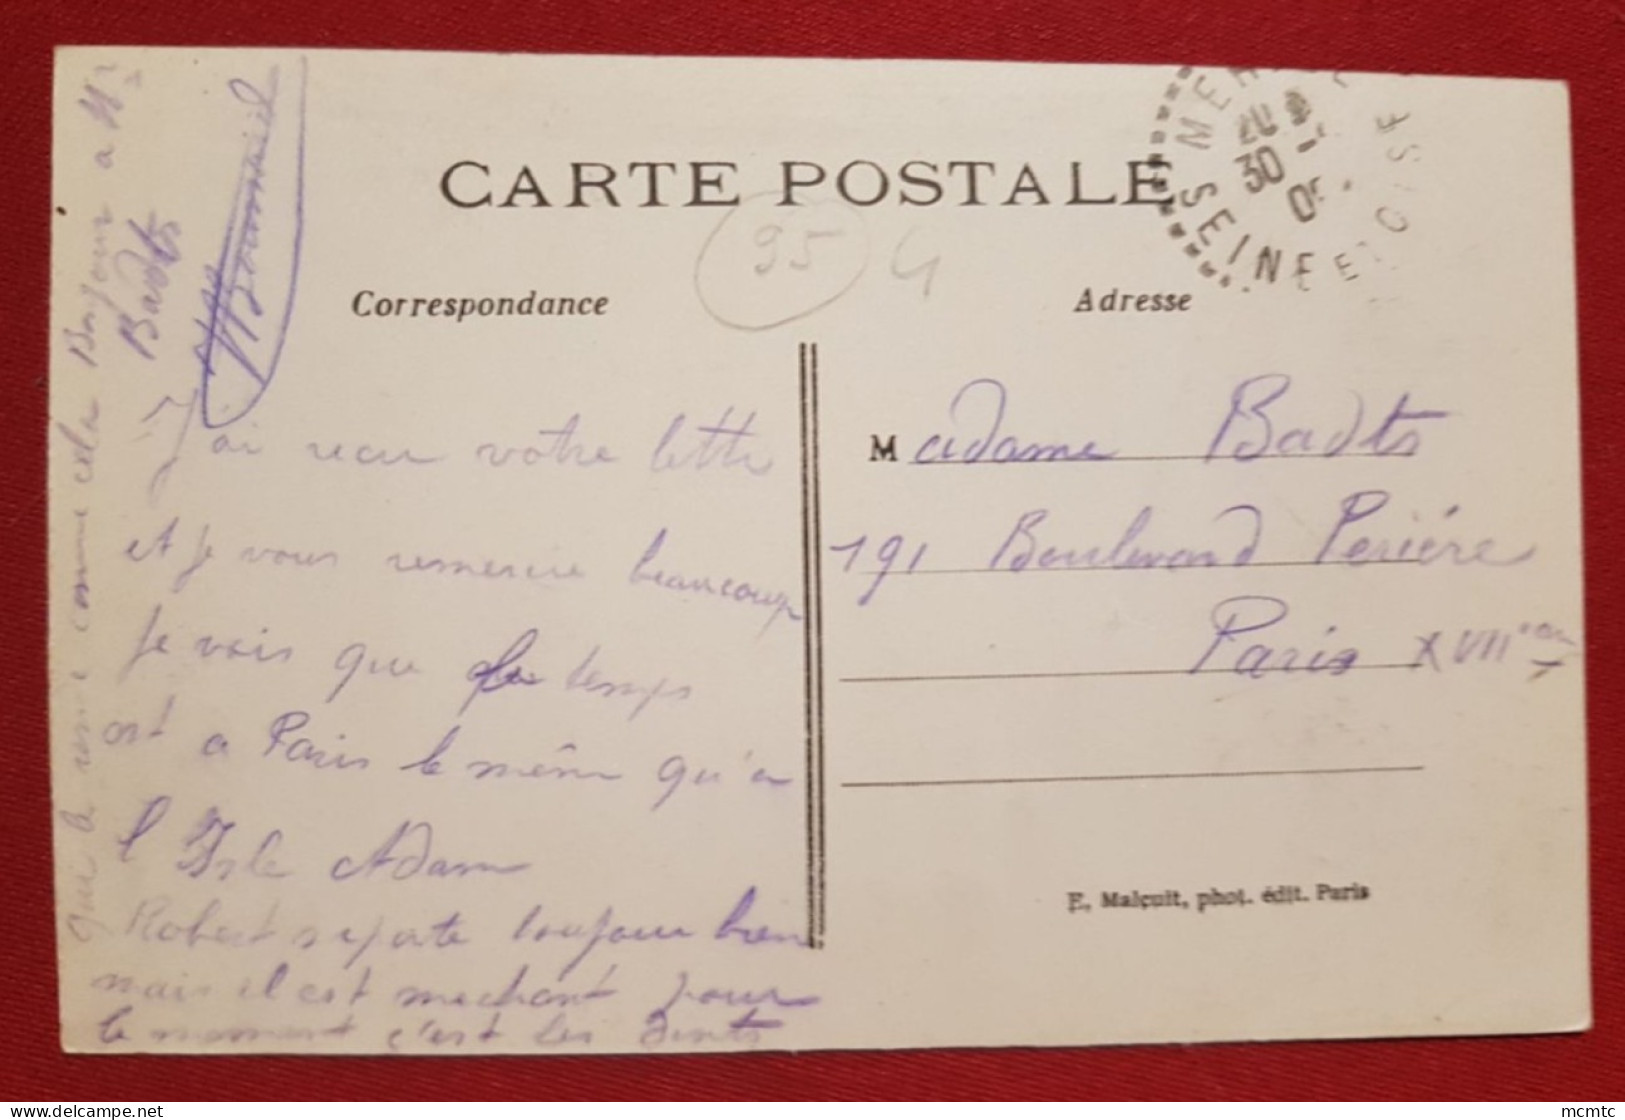 CARTE POSTALE
95 4
Correspondance
Adresse
SEINE ET OISE
30
J'ai recu votre lettre
et je vous remercie beaucoup
je vois que le temps
est a Paris le même qu'a
l'Isle Adam
Robert se porte toujour bien
mais il est mechant pour
le moment c'est les dents
qui le rend comme cela Bonjour a Mr
Badts
Madame Badts
191 Boulevard Periére
Paris XVII
E. Malcuit, phot. édit. Paris
mcmtc